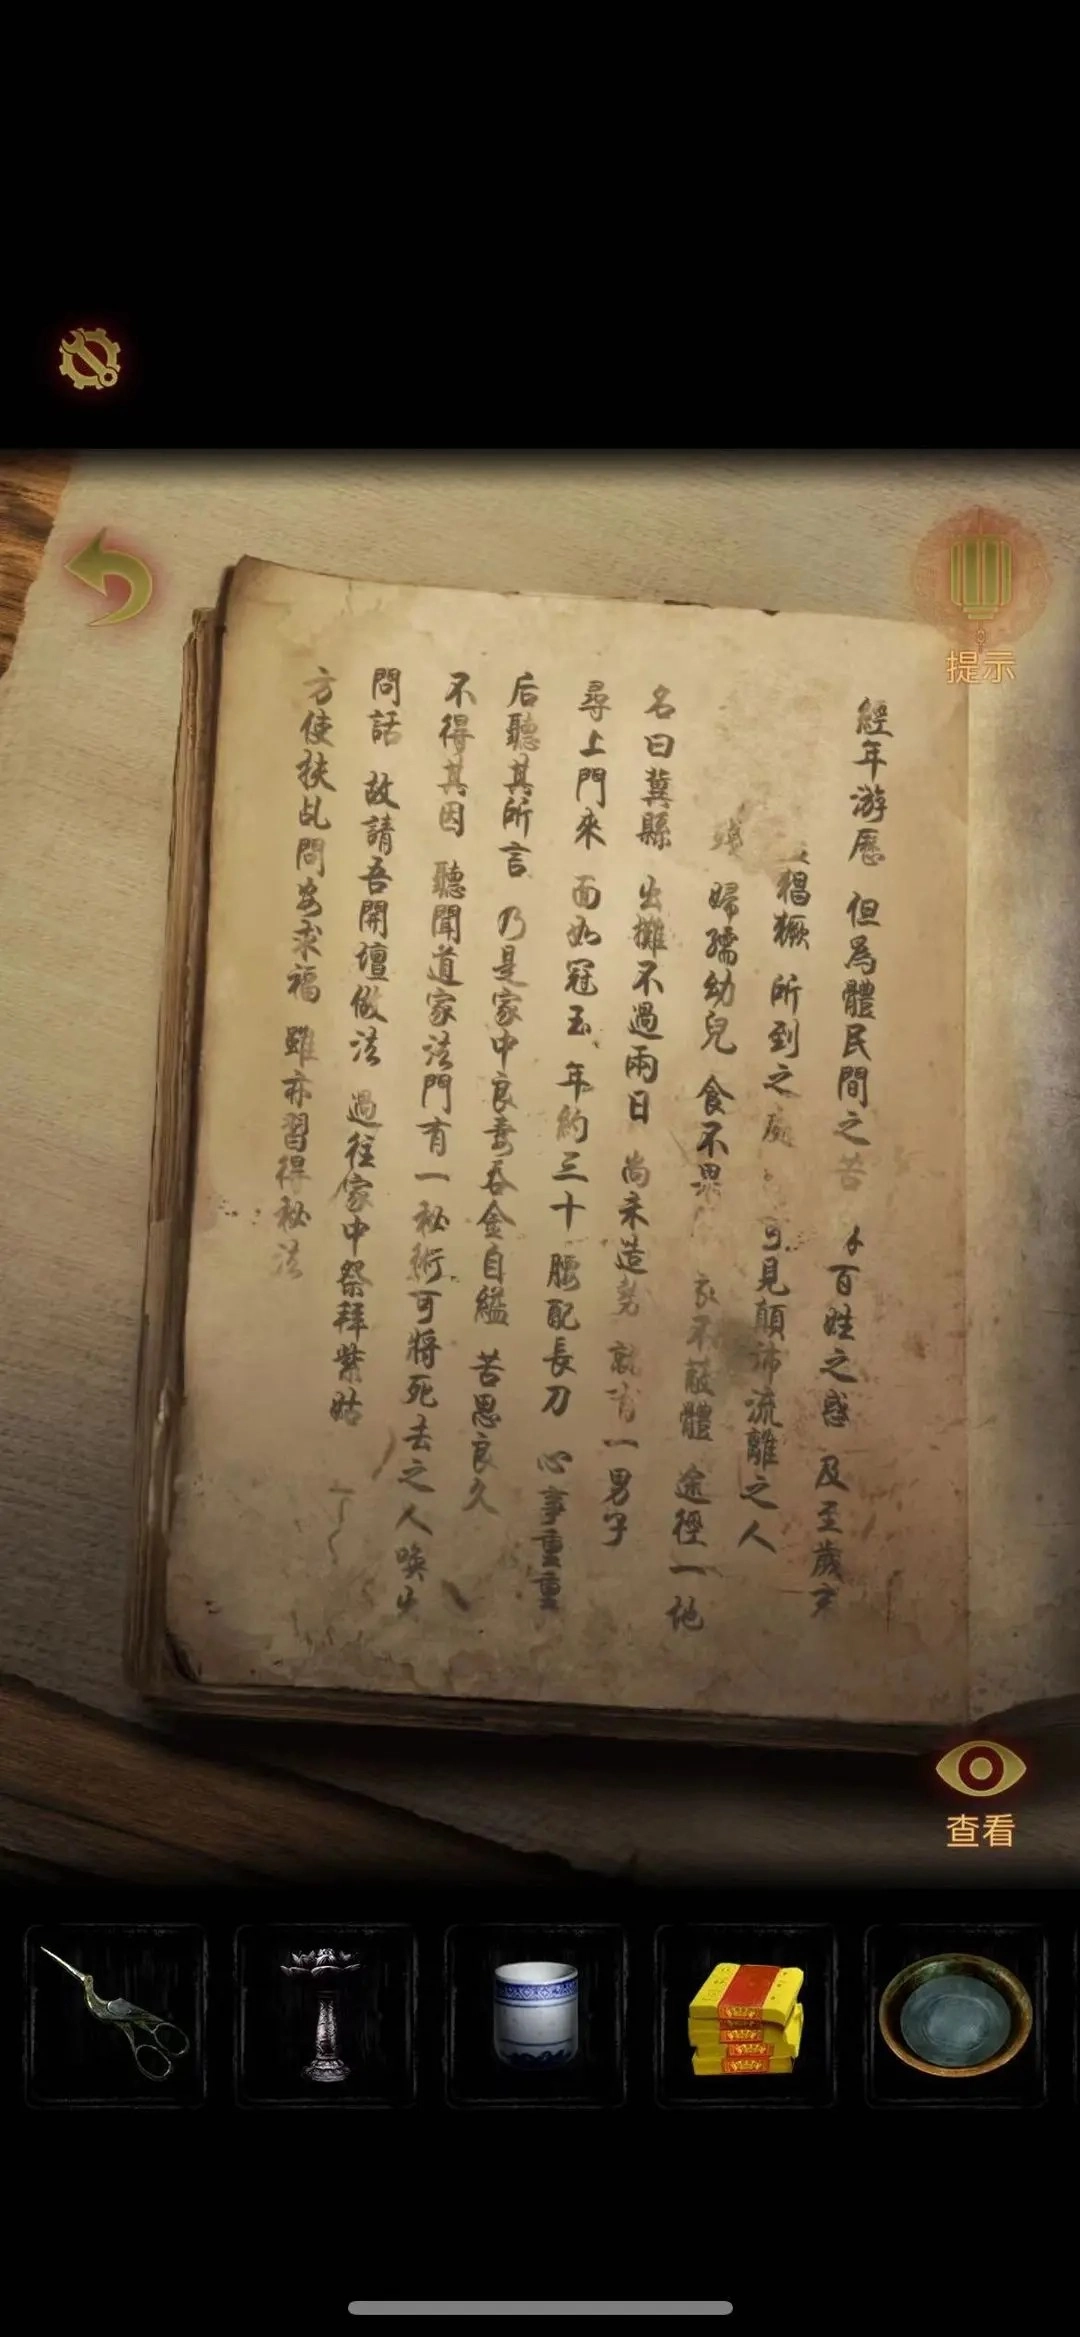 提示
經年游歷 但為體民間之苦 百姓之惑 及至歲
猖獗 所到之處 可見顛沛流離之人
殘 婦孺幼兒 食不果 衣不蔽體 途徑一地
名曰冀縣 出攤不過兩日 尚未造勢 就有一男子
尋上門來 面如冠玉 年約三十 腰配長刀 心事重重
后聽其所言 乃是家中良妻吞金自縊 苦思良久
不得其因 聽聞道家法門有一秘術可將死去之人喚
問話 故請吾開壇做法 過往家中祭拜紫姑
方使扶乩問安求福 雖亦習得秘法
查看